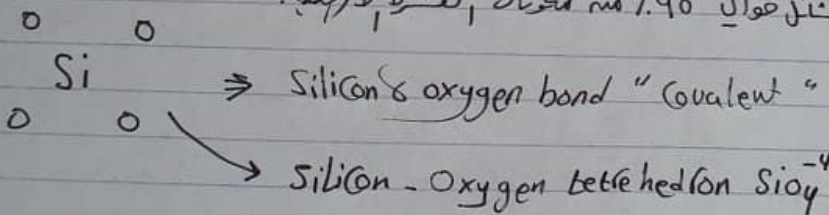 حوالي 90٪ من
O O
Si ⇒ Silicon & oxygen bond "Covalent"
O O
Silicon - Oxygen tetrehedron SiO4⁻⁴